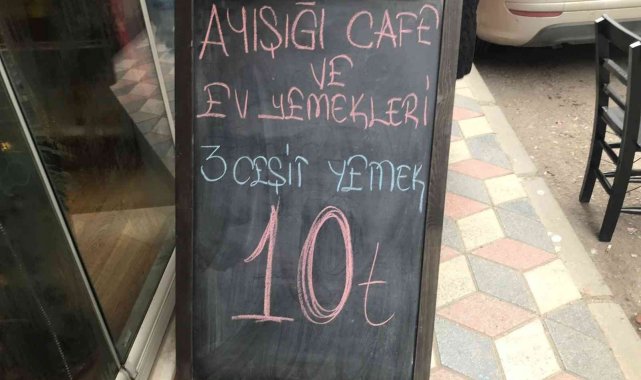 AYIŞIĞI CAFE
VE
EV YEMEKLERİ
3 ÇEŞİT YEMEK
10 t